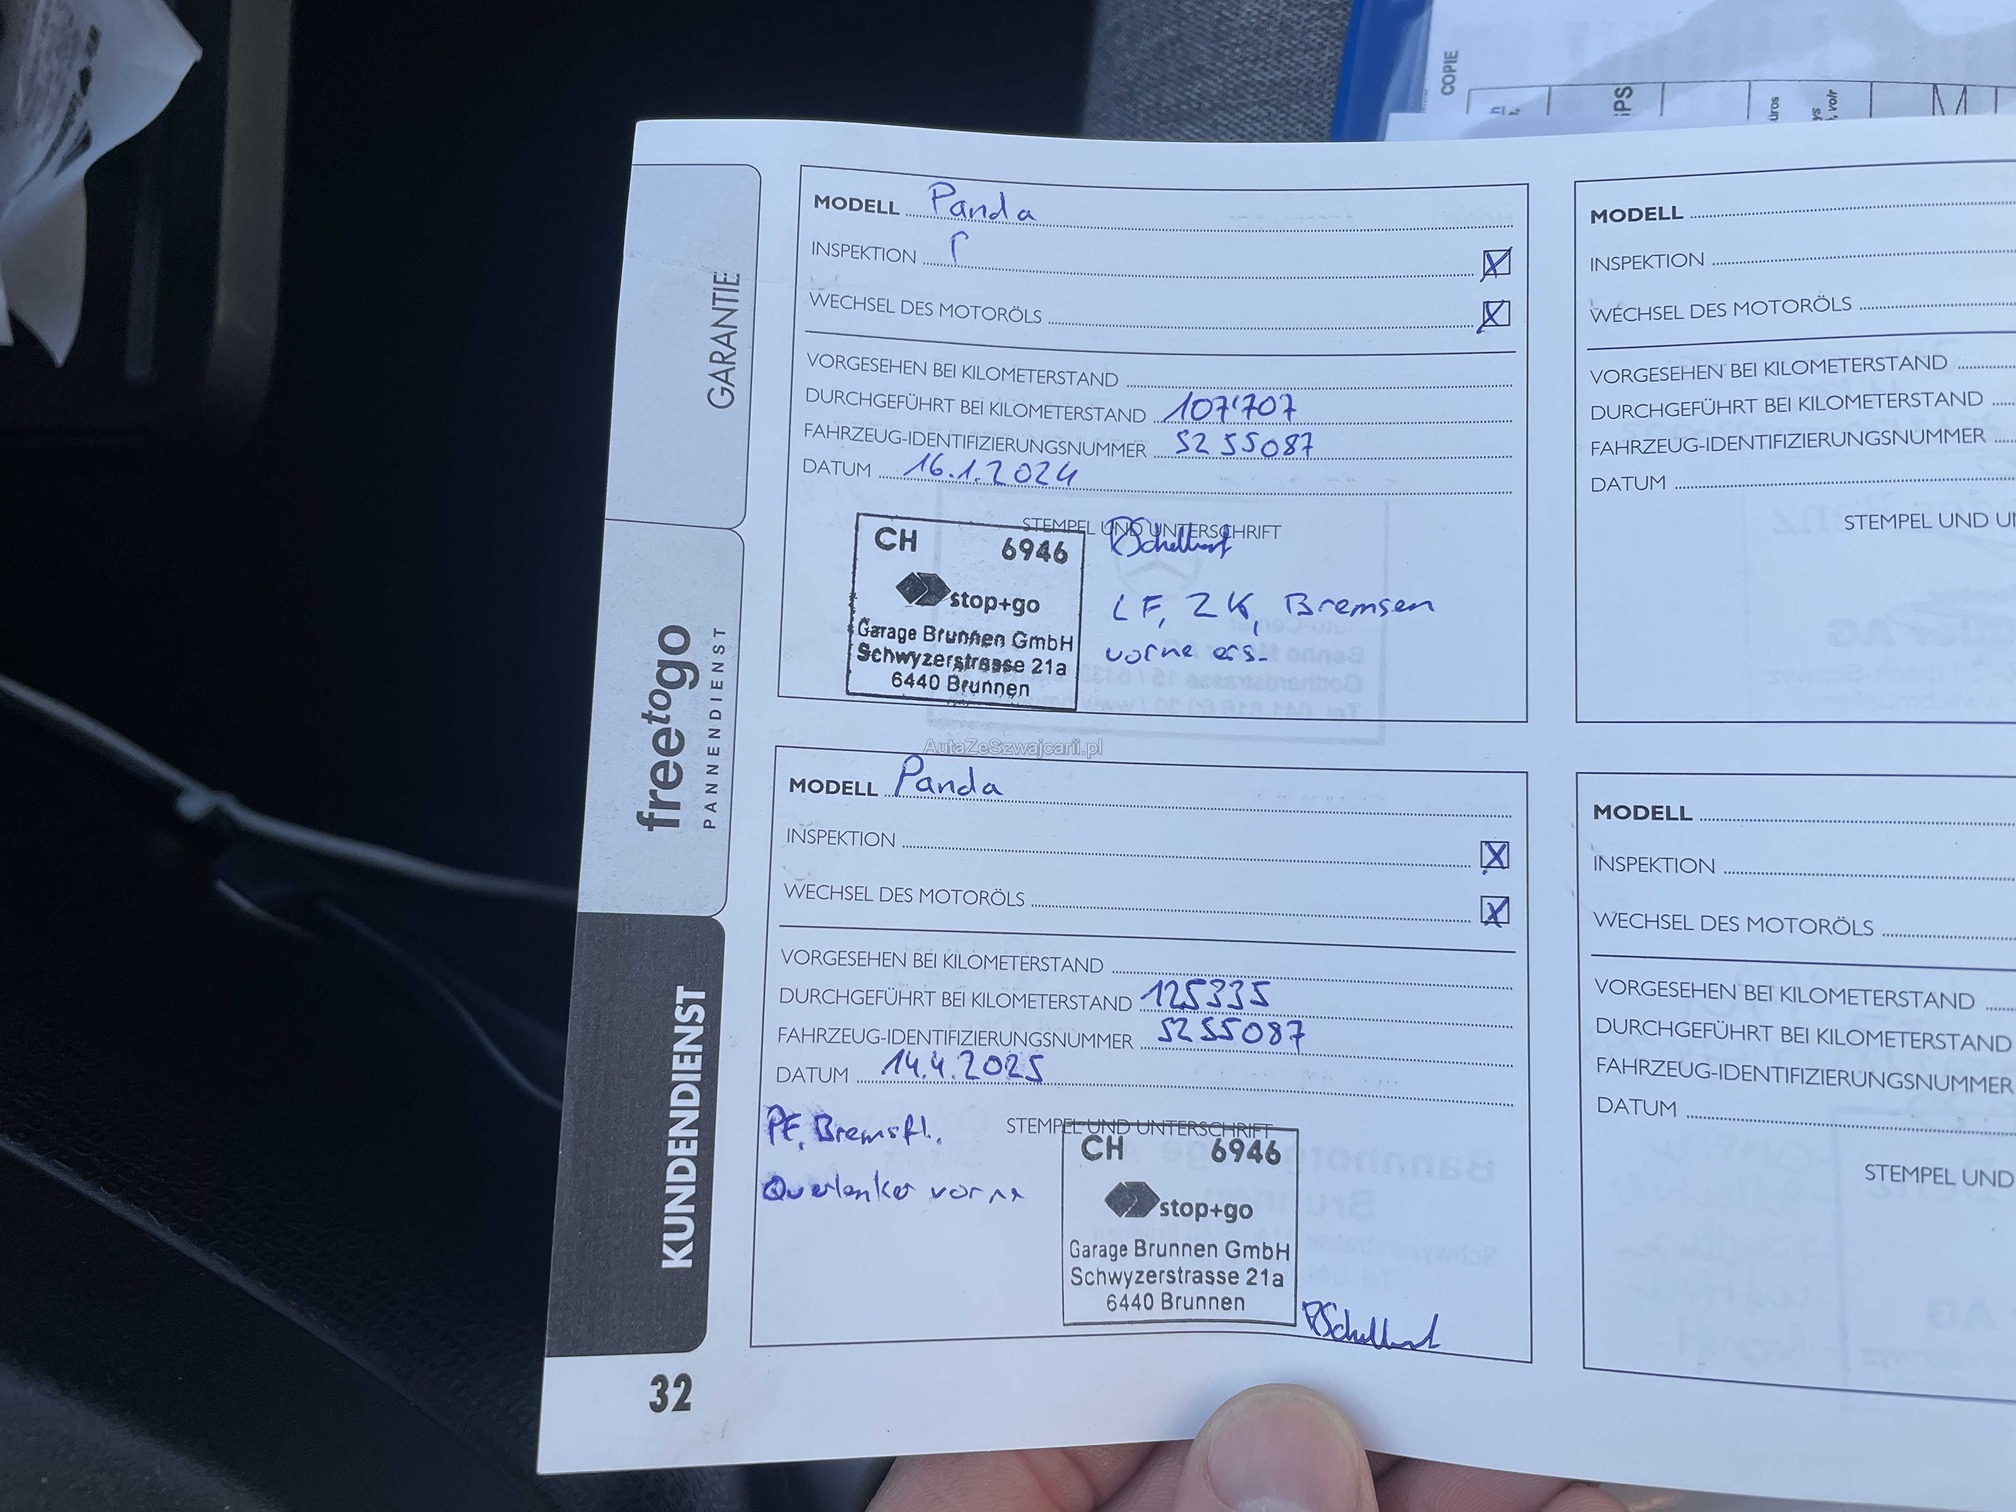 COPIE
GARANTIE
freetogo
PANNENDIENST
KUNDENDIENST
32
MODELL Panda
INSPEKTION
WECHSEL DES MOTORÖLS
VORGESEHEN BEI KILOMETERSTAND
DURCHGEFÜHRT BEI KILOMETERSTAND 107'707
FAHRZEUG-IDENTIFIZIERUNGSNUMMER 5255087
DATUM 16.1.2024
STEMPEL UND UNTERSCHRIFT
CH 6946
stop+go
Garage Brunnen GmbH
Schwyzerstrasse 21a
6440 Brunnen
LF, ZK, Bremsen
vorne ers.
AutaZeSzwajcarii.pl
MODELL Panda
INSPEKTION
WECHSEL DES MOTORÖLS
VORGESEHEN BEI KILOMETERSTAND
DURCHGEFÜHRT BEI KILOMETERSTAND 125335
FAHRZEUG-IDENTIFIZIERUNGSNUMMER 5255087
DATUM 14.4.2025
PF, Bremsfl.
Querlenker vorne
STEMPEL UND UNTERSCHRIFT
CH 6946
stop+go
Garage Brunnen GmbH
Schwyzerstrasse 21a
6440 Brunnen
MODELL
INSPEKTION
WECHSEL DES MOTORÖLS
VORGESEHEN BEI KILOMETERSTAND
DURCHGEFÜHRT BEI KILOMETERSTAND
FAHRZEUG-IDENTIFIZIERUNGSNUMMER
DATUM
STEMPEL UND
MODELL
INSPEKTION
WECHSEL DES MOTORÖLS
VORGESEHEN BEI KILOMETERSTAND
DURCHGEFÜHRT BEI KILOMETERSTAND
FAHRZEUG-IDENTIFIZIERUNGSNUMMER
DATUM
STEMPEL UND